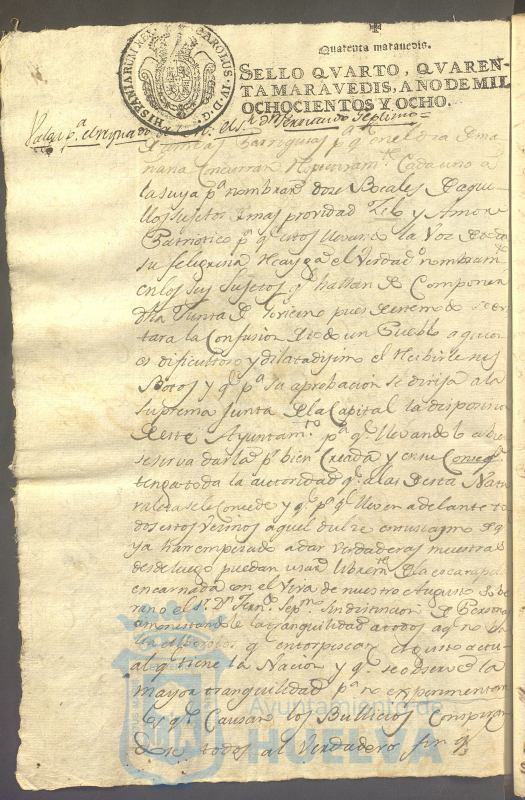 HISPANIARUM REX CAROLUS IV D G
Quarenta maravedis.
SELLO QVARTO, QVAREN-
TA MARAVEDIS, AÑO DE MIL
OCHOCIENTOS Y OCHO.
Valga pa. el reynado de el Sr. Dn. Fernando Septimo =
pa. q. en el dia de ma
ñana Concurran Cada uno a
la suya pa. nombrar dose Bocales de aque
llos sujetos de mas providad Zelo y Amor
Patriotico pa. q. estos llevando la Voz de
su feligresia Haygan el Verdado. nombramto.
en los seis sujetos q. hallan de Componer
dha Junta de Govierno pues de este modo se evi
tara la Confusion de todo un Pueblo a quien
es dificultoso y dilatadisimo el Recibirle sus
Botos y q. pa. su aprobacion se dirija a la
Suprema Junta de la Capital la disposicion
de este Ayuntamto. pa. q. llevandolo
se sirva darla pr. bien Creada y en su Conseqa.
tenga toda la autoridad q. a las de esta Natu
raleza se le Concede y q. pa. q. lleven adelante to
dos estos Vecinos aquel dulce entusiasmo de q.
ya han empesado a dar Verdaderas muestras
desde luego puedan usar libremte. de la escarapela
encarnada con el Viva de nuestro Augusto Sobe
rano el Sr. Dn. Ferndo. Sepmo. sin distincion de Personas
amonestandole la tranquilidad a todos
q. entorpescan el gusto actu
al q. tiene la Nacion y q. se observe la
mayor tranquilidad pa. no experimentar
los q. Causan los Bullicios Conspiran
dose todos al Verdadero fin q.
Ayuntamiento de
HUELVA